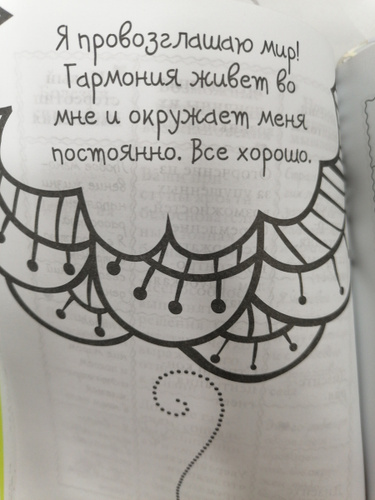 Я провозглашаю мир!
Гармония живет во
мне и окружает меня
постоянно. Все хорошо.